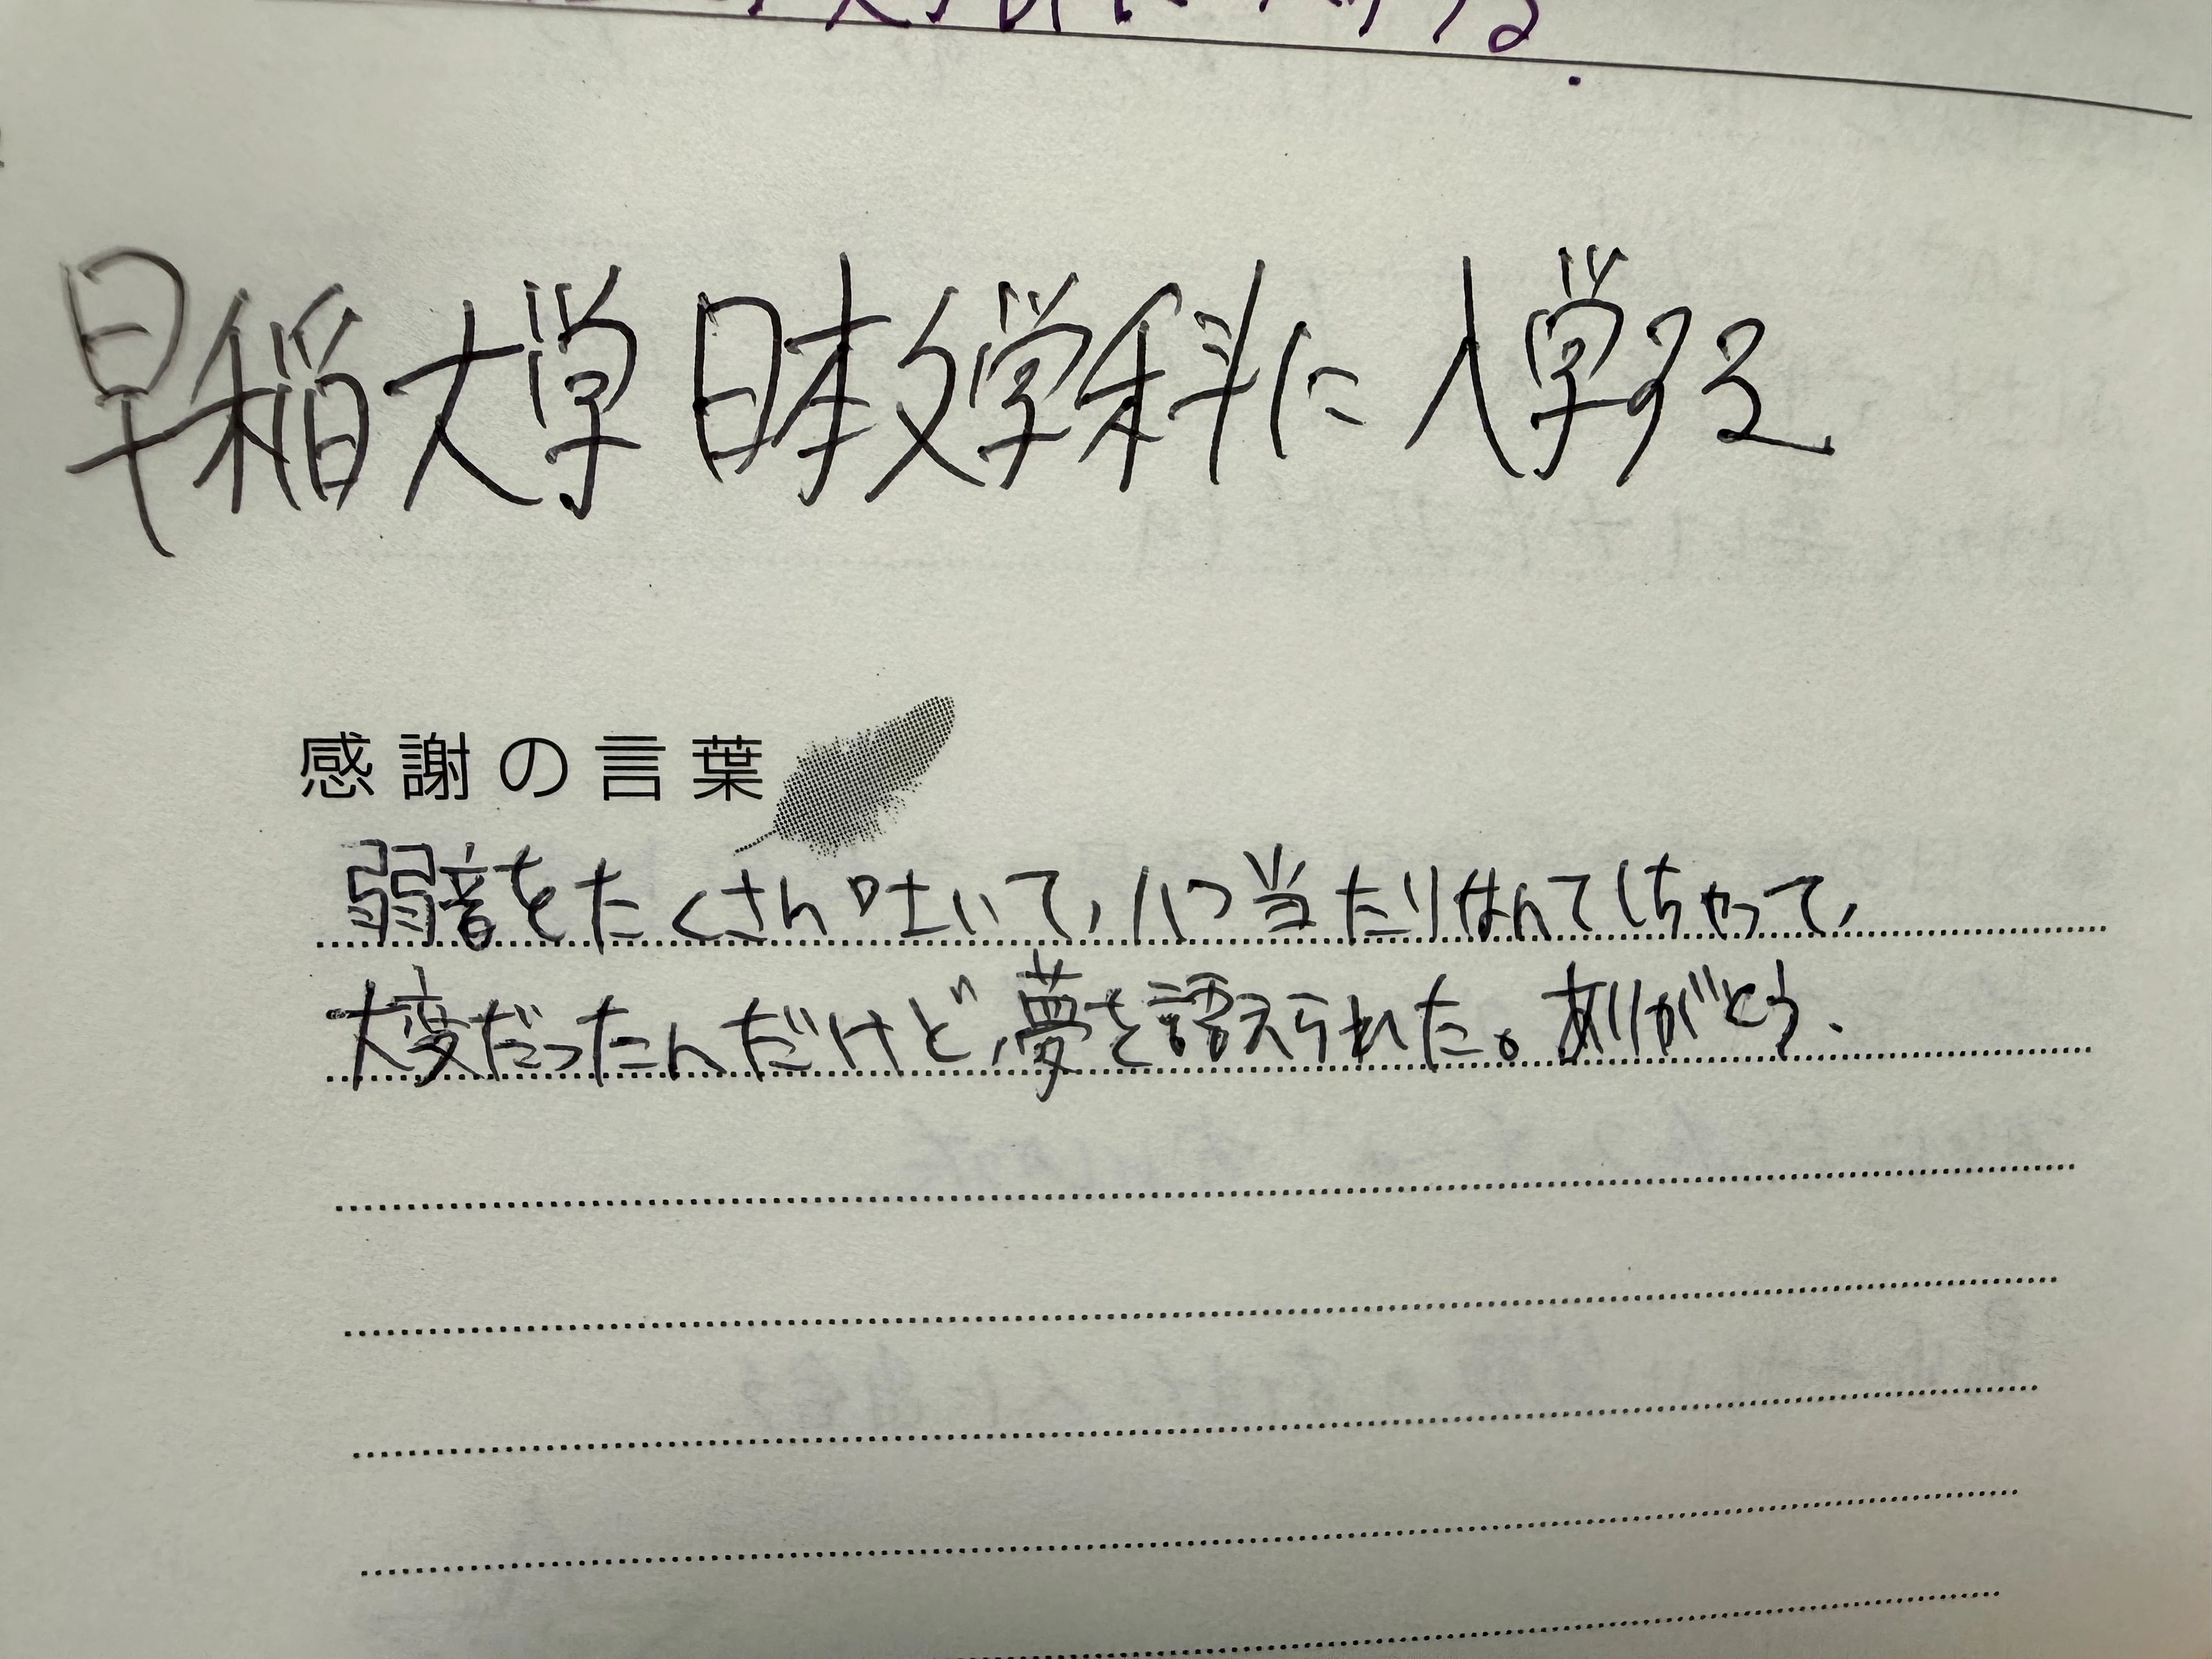 早稲大学 日本文学科に 入学する
感謝の言葉
弱音をたくさん吐いて、八つ当たりなんてしちゃって、
大変だったんだけど、夢を叶えられた。ありがとう.